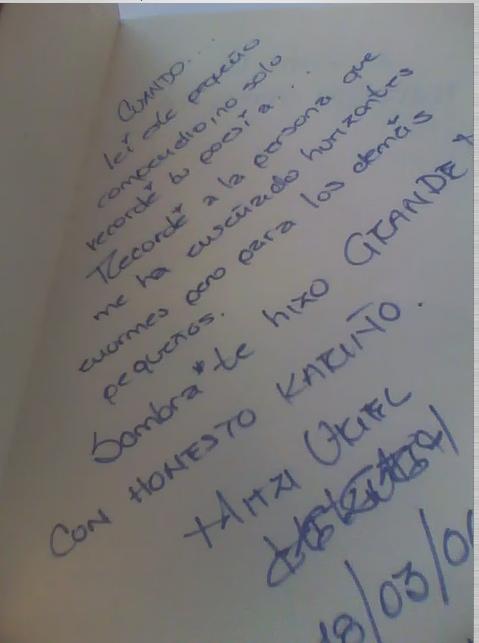 CUANDO...
leí este pequeño
compendio, no solo
recordé tu poesía...
Recordé a la persona que
me ha enseñado horizontes
enormes pero para los demás
pequeños.
Sombra* te hizo GRANDE*
CON HONESTO KARIÑO.
URIEL
18/03/0